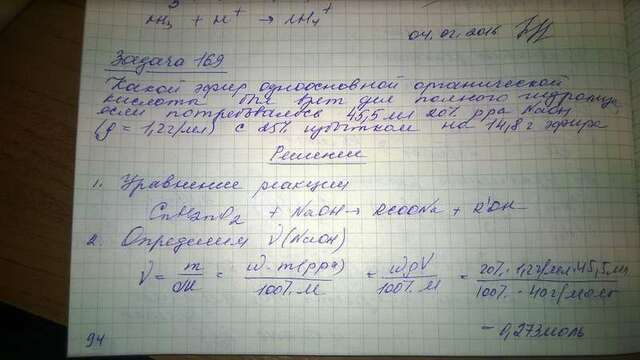 NH₃ + H⁺ → NH₄⁺
04.02.2016
Задача 169
Какой эфир одноосновной органической
кислоты был взят для полного гидролиза,
если потребовалось 45,5 мл 20% р-ра NaOH
(ρ = 1,2 г/мл) с 25% избытком на 14,8 г эфира
Решение
1. Уравнение реакции
CnH2nO2 + NaOH → RCOONa + R'OH
2. Определим ν(NaOH)
ν = m/M = ω·m(р-ра)/100%·M = ωρV/100%·M = 20%·1,2г/мл·45,5мл/100%·40г/моль
= 0,273моль
94